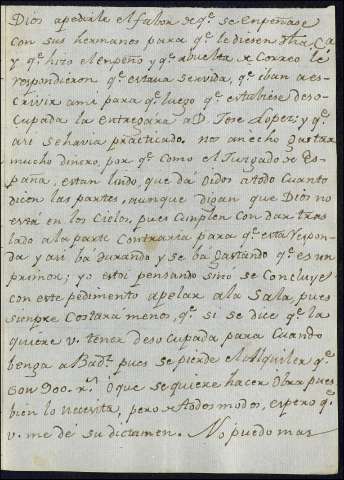 Dios apedirle el fabor de q.e se enpeñase
con sus hermanos para q.e le diesen otra Ca
y q.e hizo el enpeño y q.e abuelta de Correo le
respondieron q.e estava servida, q.e iban a es-
crivir ami para q.e luego q.e estubiese deso-
cupada la entregara a D. Jose Lopez, y q.e
asi se havia practicado. nos an echo gastar
mucho dinero, por q.e como el Juzgado de Es-
paña, estan lindo, que dá oidos atodo cuanto
dicen las partes, aunque digan que Dios no
está en los Cielos, pues cumplen con dar tras
lado ala parte Contraria para q.e esta respon-
da y asi bá durando y se bá gastando q.e es un
primor; yo estoi pensando sinó se concluye
con este pedimento apelar ala Sala, pues
siempre Costará menos, q.e si se dice q.e la
quiere v. tener desocupada para Cuando
benga a Bad.z pues se pierde el Alquiler q.e
son 900. r.s o que se quiere hacer Obra, pues
bien lo necesita, pero de todos modos, espero q.e
v. me dé su dictamen. No puedo mas